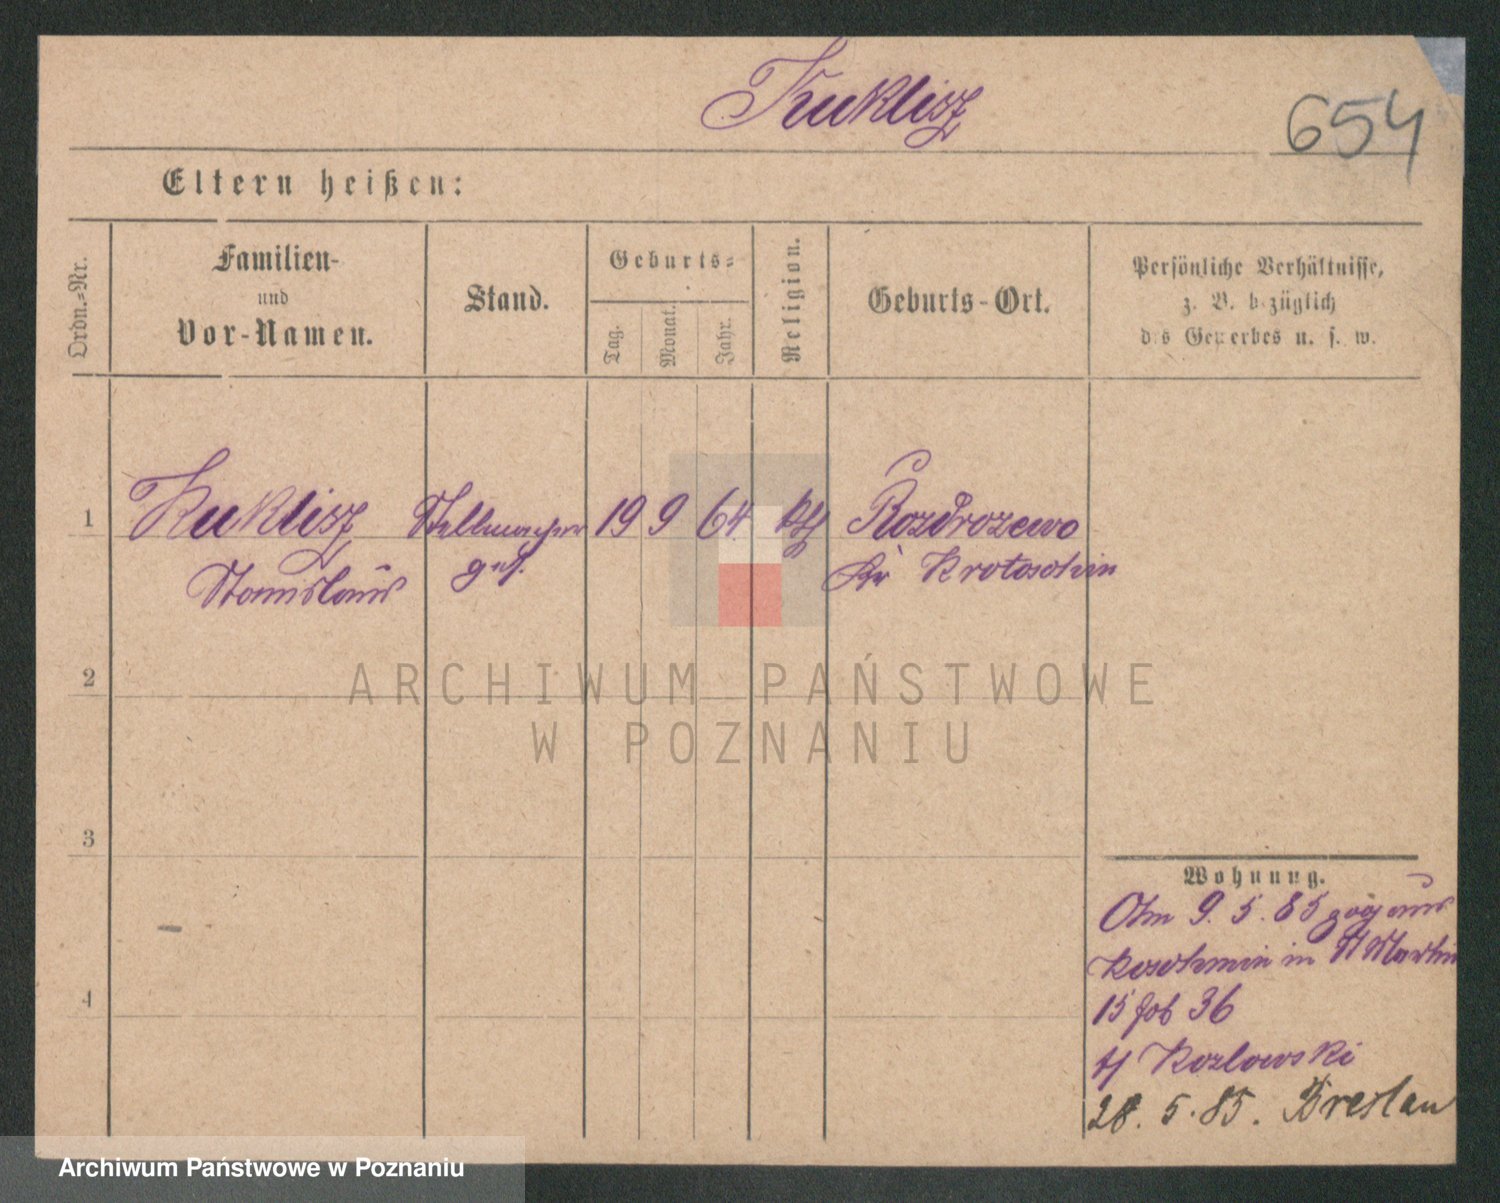 Kuklisz
654
Eltern heißen:
Ordn.-Nr.
Familien-
und
Vor-Namen.
Stand.
Geburts-
Tag.
Monat.
Jahr.
Religion.
Geburts-Ort.
Persönliche Verhältnisse,
z. B. bezüglich
des Gewerbes u. s. w.
1 Kuklisz Stellmacher 19 9 64 kth Rozdrozewo
Stanislaus ges. Kr Krotoschin
2
ARCHIWUM PAŃSTWOWE
W POZNANIU
3
4
Wohnung.
Am 9. 5. 85 zog aus
Koschmin in St Martin
15 36
Kozlowski
28. 5. 85. Breslau
Archiwum Państwowe w Poznaniu